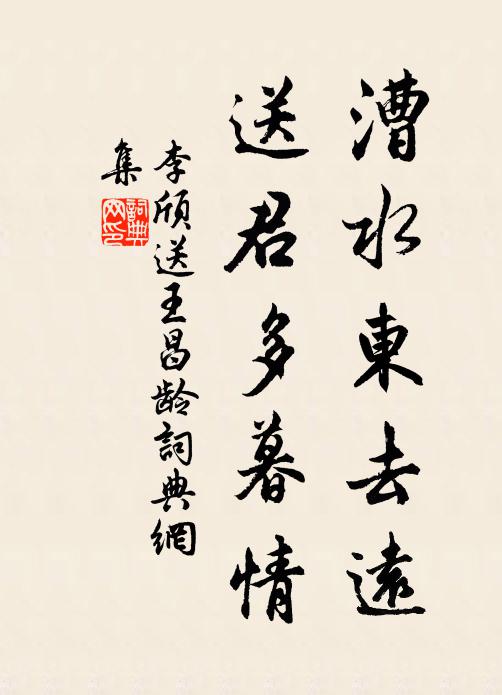 漕水東去遠
送君多暮情
李頎送王昌齡詞典網
集
詞典
網印